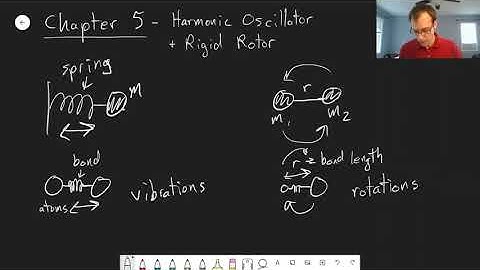 Chapter 5 - Harmonic Oscillator
+ Rigid Rotor
spring
m
r
m1
m2
bond
atoms
vibrations
r = bond length
rotations